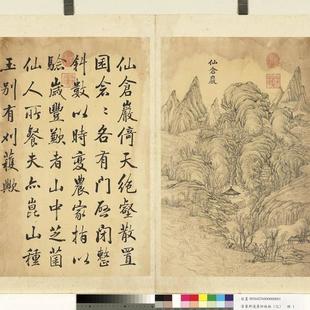 仙倉巖
仙倉巖倚天絶壑散置
囷各有門啓閉整
斜數以時變農家指以
驗歲豐歉者山中芝菌
仙人所餐夫亦崑山種
玉別有刈穫歟